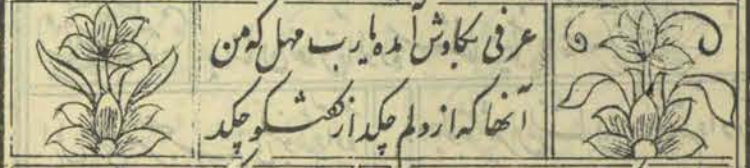 عرفی بکاوش آمده یارب مهل که من
آنها که از دلم چکد از گفتگو چکد